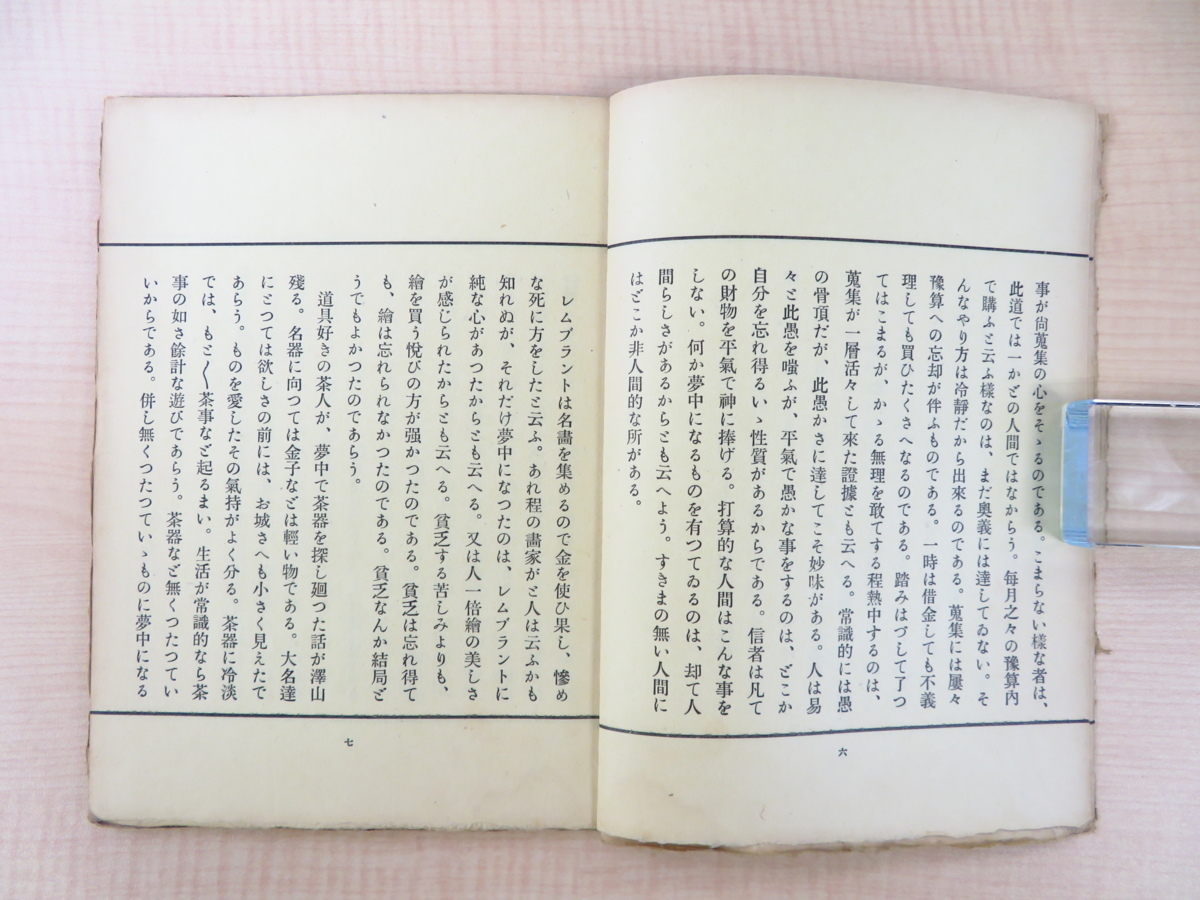 事が尙蒐集の心をそゝるのである。こまらない樣な者は、
此道では一かどの人間ではなからう。每月之々の豫算內
で購ふと云ふ樣なのは、まだ奧義には達してゐない。そ
んなやり方は冷靜だから出來るのである。蒐集には屢々
豫算への忘却が伴ふものである。一時は借金しても不義
理しても買ひたくさへなるのである。踏みはづして了つ
てはこまるが、かゝる無理を敢てする程熱中するのは、
蒐集が一層活々して來た證據とも云へる。常識的には愚
の骨頂だが、此愚かさに達してこそ妙味がある。人は易
々と此愚を嗤ふが、平氣で愚かな事をするのは、どこか
自分を忘れ得るいゝ性質があるからである。信者は凡て
の財物を平氣で神に捧げる。打算的な人間はこんな事を
しない。何か夢中になるものを有つてゐるのは、却て人
間らしさがあるからとも云へよう。すきまの無い人間に
はどこか非人間的な所がある。
六
レムブラントは名畫を集めるので金を使ひ果し、慘め
な死に方をしたと云ふ。あれ程の畫家がと人は云ふかも
知れぬが、それだけ夢中になつたのは、レムブラントに
純な心があつたからとも云へる。又は人一倍繪の美しさ
が感じられたからとも云へる。貧乏する苦しみよりも、
繪を買う悅びの方が强かつたのである。貧乏は忘れ得て
も、繪は忘れられなかつたのである。貧乏なんか結局ど
うでもよかつたのであらう。
道具好きの茶人が、夢中で茶器を探し廻つた話が澤山
殘る。名器に向つては金子などは輕い物である。大名達
にとつては欲しさの前には、お城さへも小さく見えたで
あらう。ものを愛したその氣持がよく分る。茶器に冷淡
では、もと〱茶事など起るまい。生活が常識的なら茶
事の如き餘計な遊びであらう。茶器など無くつたつてい
いからである。併し無くつたつていゝものに夢中になる
七